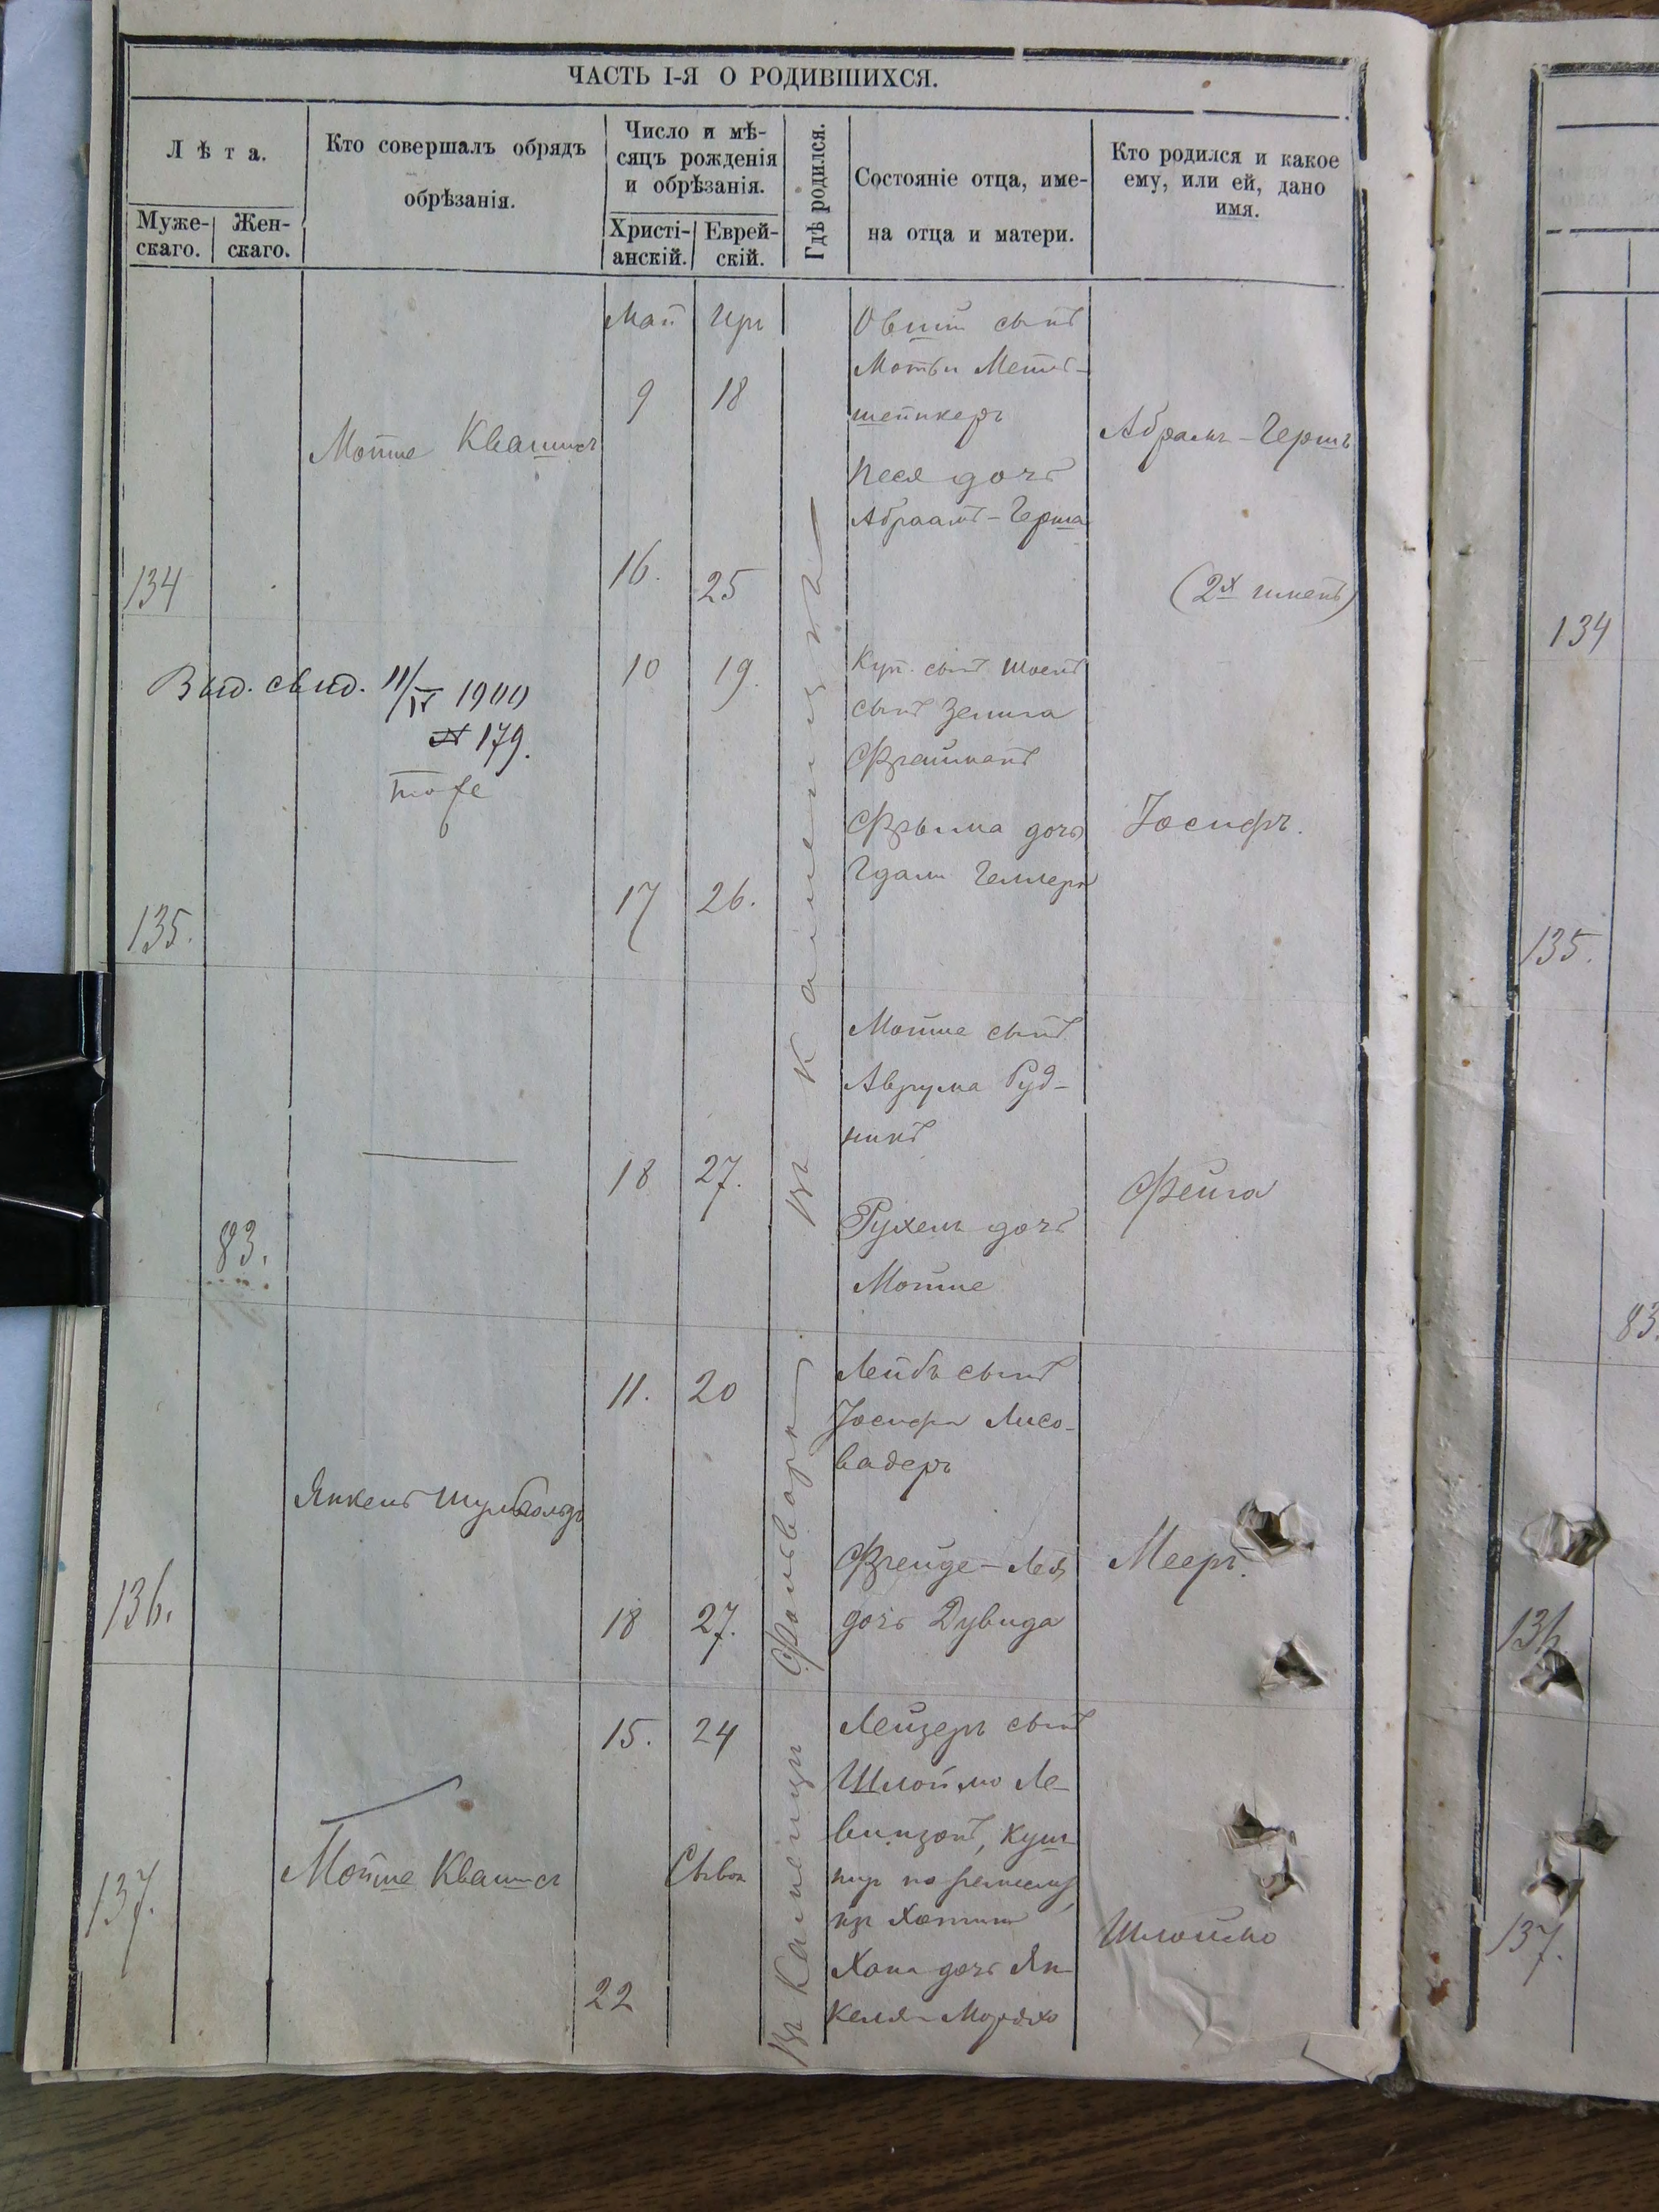 ЧАСТЬ I-Я О РОДИВШИХСЯ.
Лѣта.
Муже-
скаго.
Жен-
скаго.
Кто совершалъ обрядъ
обрѣзанія.
Число и мѣ-
сяцъ рожденія
и обрѣзанія.
Христі-
анскій.
Еврей-
скій.
Гдѣ родился.
Состояніе отца, име-
на отца и матери.
Кто родился и какое
ему, или ей, дано
имя.
134
Мотше Квашисъ
Май
9
16.
Иръ
18
25
сынъ
Мотьи
Песя дочь
Абраамъ-Герша
Абрамъ-Гершъ
(2х именъ)
135.
Выд. свид. 11/IV 1900
№ 179.
10
17
19.
26.
Въ Каменцѣ
Куп. сынъ
сынъ Зелига
Фрейманъ
Фрыма дочь
Гдали Геллера
Іосифъ.
83.
18
27.
Мотше сынъ
Аврума Руд-
никъ
Рухель дочь
Мотше
Фейга
136.
Янкель
11.
18
20
27.
Фольваркъ
Лейбъ сынъ
Іосифа Лисо-
вадеръ
Фрейде-Лея
дочь Дувида
Мееръ.
137.
Мотше Квашисъ
15.
22
24
Сывон
Въ Каменцѣ
Лейзеръ сынъ
Шлоймо Ле-
винзонъ, куш-
нир по ремеслу,
Хана дочь Ян-
келя-Мордхо
Шлоймо
134
135.
83.
136
137.